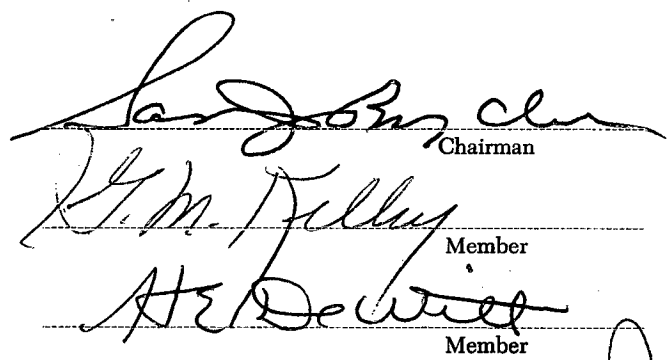 Chairman
G. M. Kelley
Member
H E DeWitt
Member